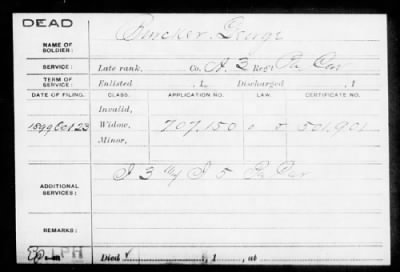 DEAD
NAME OF SOLDIER:
SERVICE: Late rank, Co. A. 3 Reg't Pa Cav
TERM OF SERVICE: Enlisted , 1 Discharged , 1
DATE OF FILING. CLASS. APPLICATION NO. LAW. CERTIFICATE NO.
Invalid,
1899 Oct 23 Widow, 707,150 501,901
Minor,
ADDITIONAL SERVICES: I 3 & I 5 Pa Cav
REMARKS:
Died 1 , at